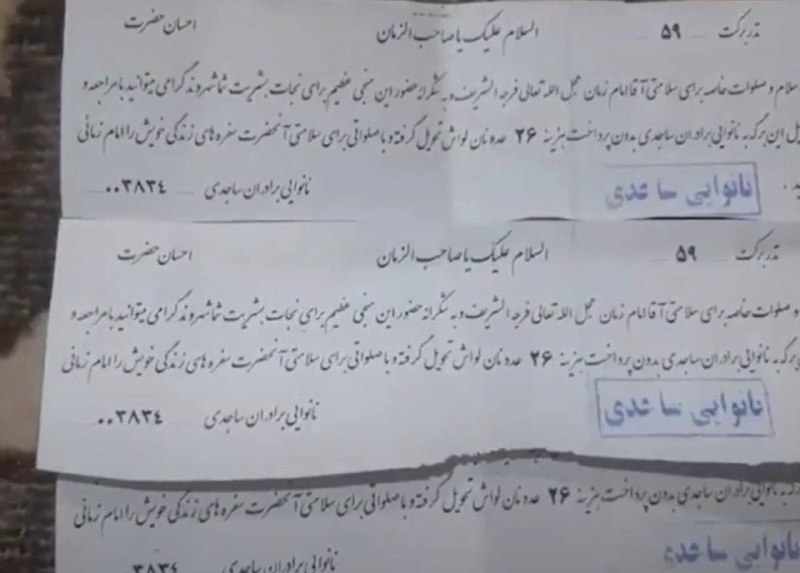 نذر برکت ۵۹ السلام علیک یا صاحب الزمان احسان حضرت
سلام و صلوات خاصه برای سلامتی آقا امام زمان عجل الله تعالی فرجه الشریف و به شکرانه حضور این منجی عظیم برای نجات بشریت شما شهروند گرامی میتوانید با مراجعه و
یل این برگه به نانوایی برادران ساجدی بدون پرداخت هزینه ۲۶ عدد نان لواش تحویل گرفته و با صلواتی برای سلامتی آنحضرت سفره های زندگی خویش را امام زمانی
ید. نانوایی برادران ساجدی ۰۰۳۸۳۴
نانوایی ساجدی
نذر برکت ۵۹ السلام علیک یا صاحب الزمان احسان حضرت
و صلوات خاصه برای سلامتی آقا امام زمان عجل الله تعالی فرجه الشریف و به شکرانه حضور این منجی عظیم برای نجات بشریت شما شهروند گرامی میتوانید با مراجعه و
برگه به نانوایی برادران ساجدی بدون پرداخت هزینه ۲۶ عدد نان لواش تحویل گرفته و با صلواتی برای سلامتی آنحضرت سفره های زندگی خویش را امام زمانی
نانوایی برادران ساجدی ۰۰۳۸۳۴
نانوایی ساجدی
به نانوایی برادران ساجدی بدون پرداخت هزینه ۲۶ عدد نان لواش تحویل گرفته و با صلواتی برای سلامتی آنحضرت سفره های زندگی خویش را امام زمانی
نانوایی برادران ساجدی ۳۸۳۴
نانوایی ساجدی